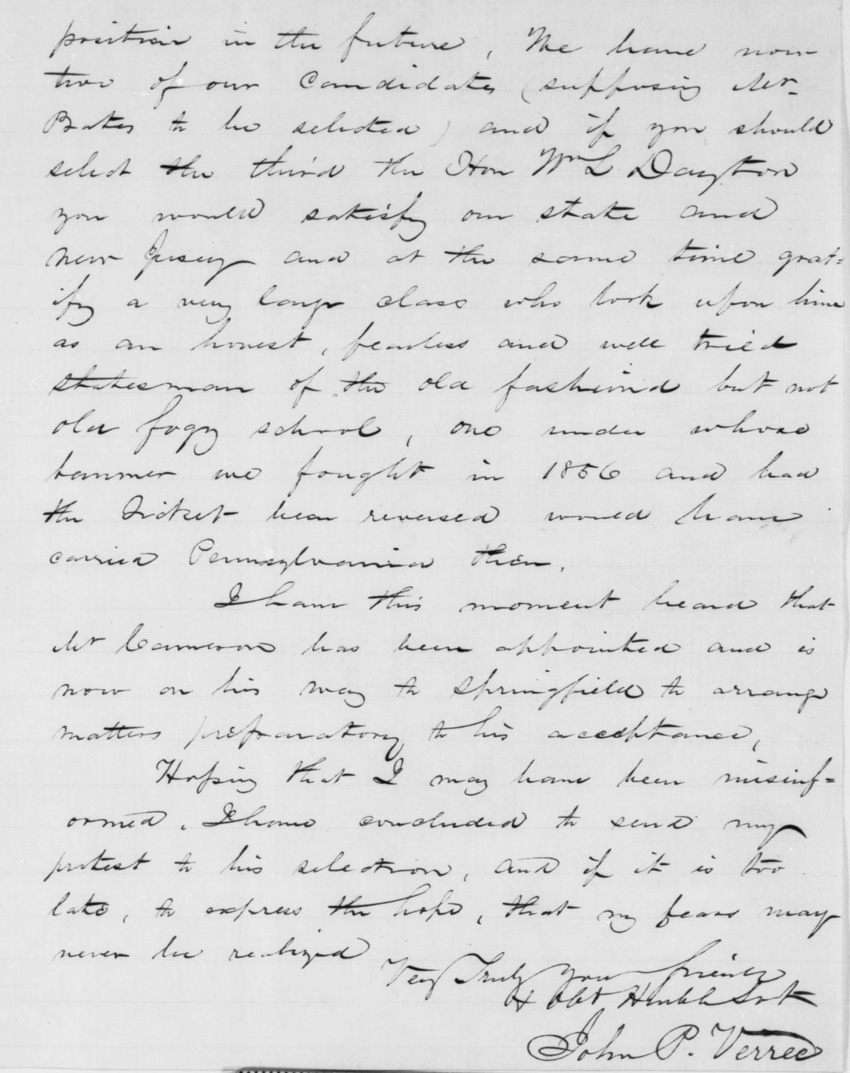 position in the future, We have now
two of our candidates (supposing Mr
Bates to be selected) and if you should
select the third the Hon Wm L Dayton
you would satisfy our state and
New Jersey and at the same time grat=
ify a very large class who look upon him
as an honest, fearless and well tried
statesman of the old fashiond but not
old fogy school, one under whose
banner we fought in 1856 and had
the Ticket been reversed would have
carried Pennsylvania then.
I have this moment heard that
Mr Cameron has been appointed and is
now on his way to Springfield to arrange
matters preparatory to his acceptance,
Hoping that I may have been misinf=
ormed, I have concluded to send my
protest to his selection, and if it is too
late, to express the hope, that my fears may
never be realized
Very Truly your friend
& Obt Humble Svt
John P. Verree